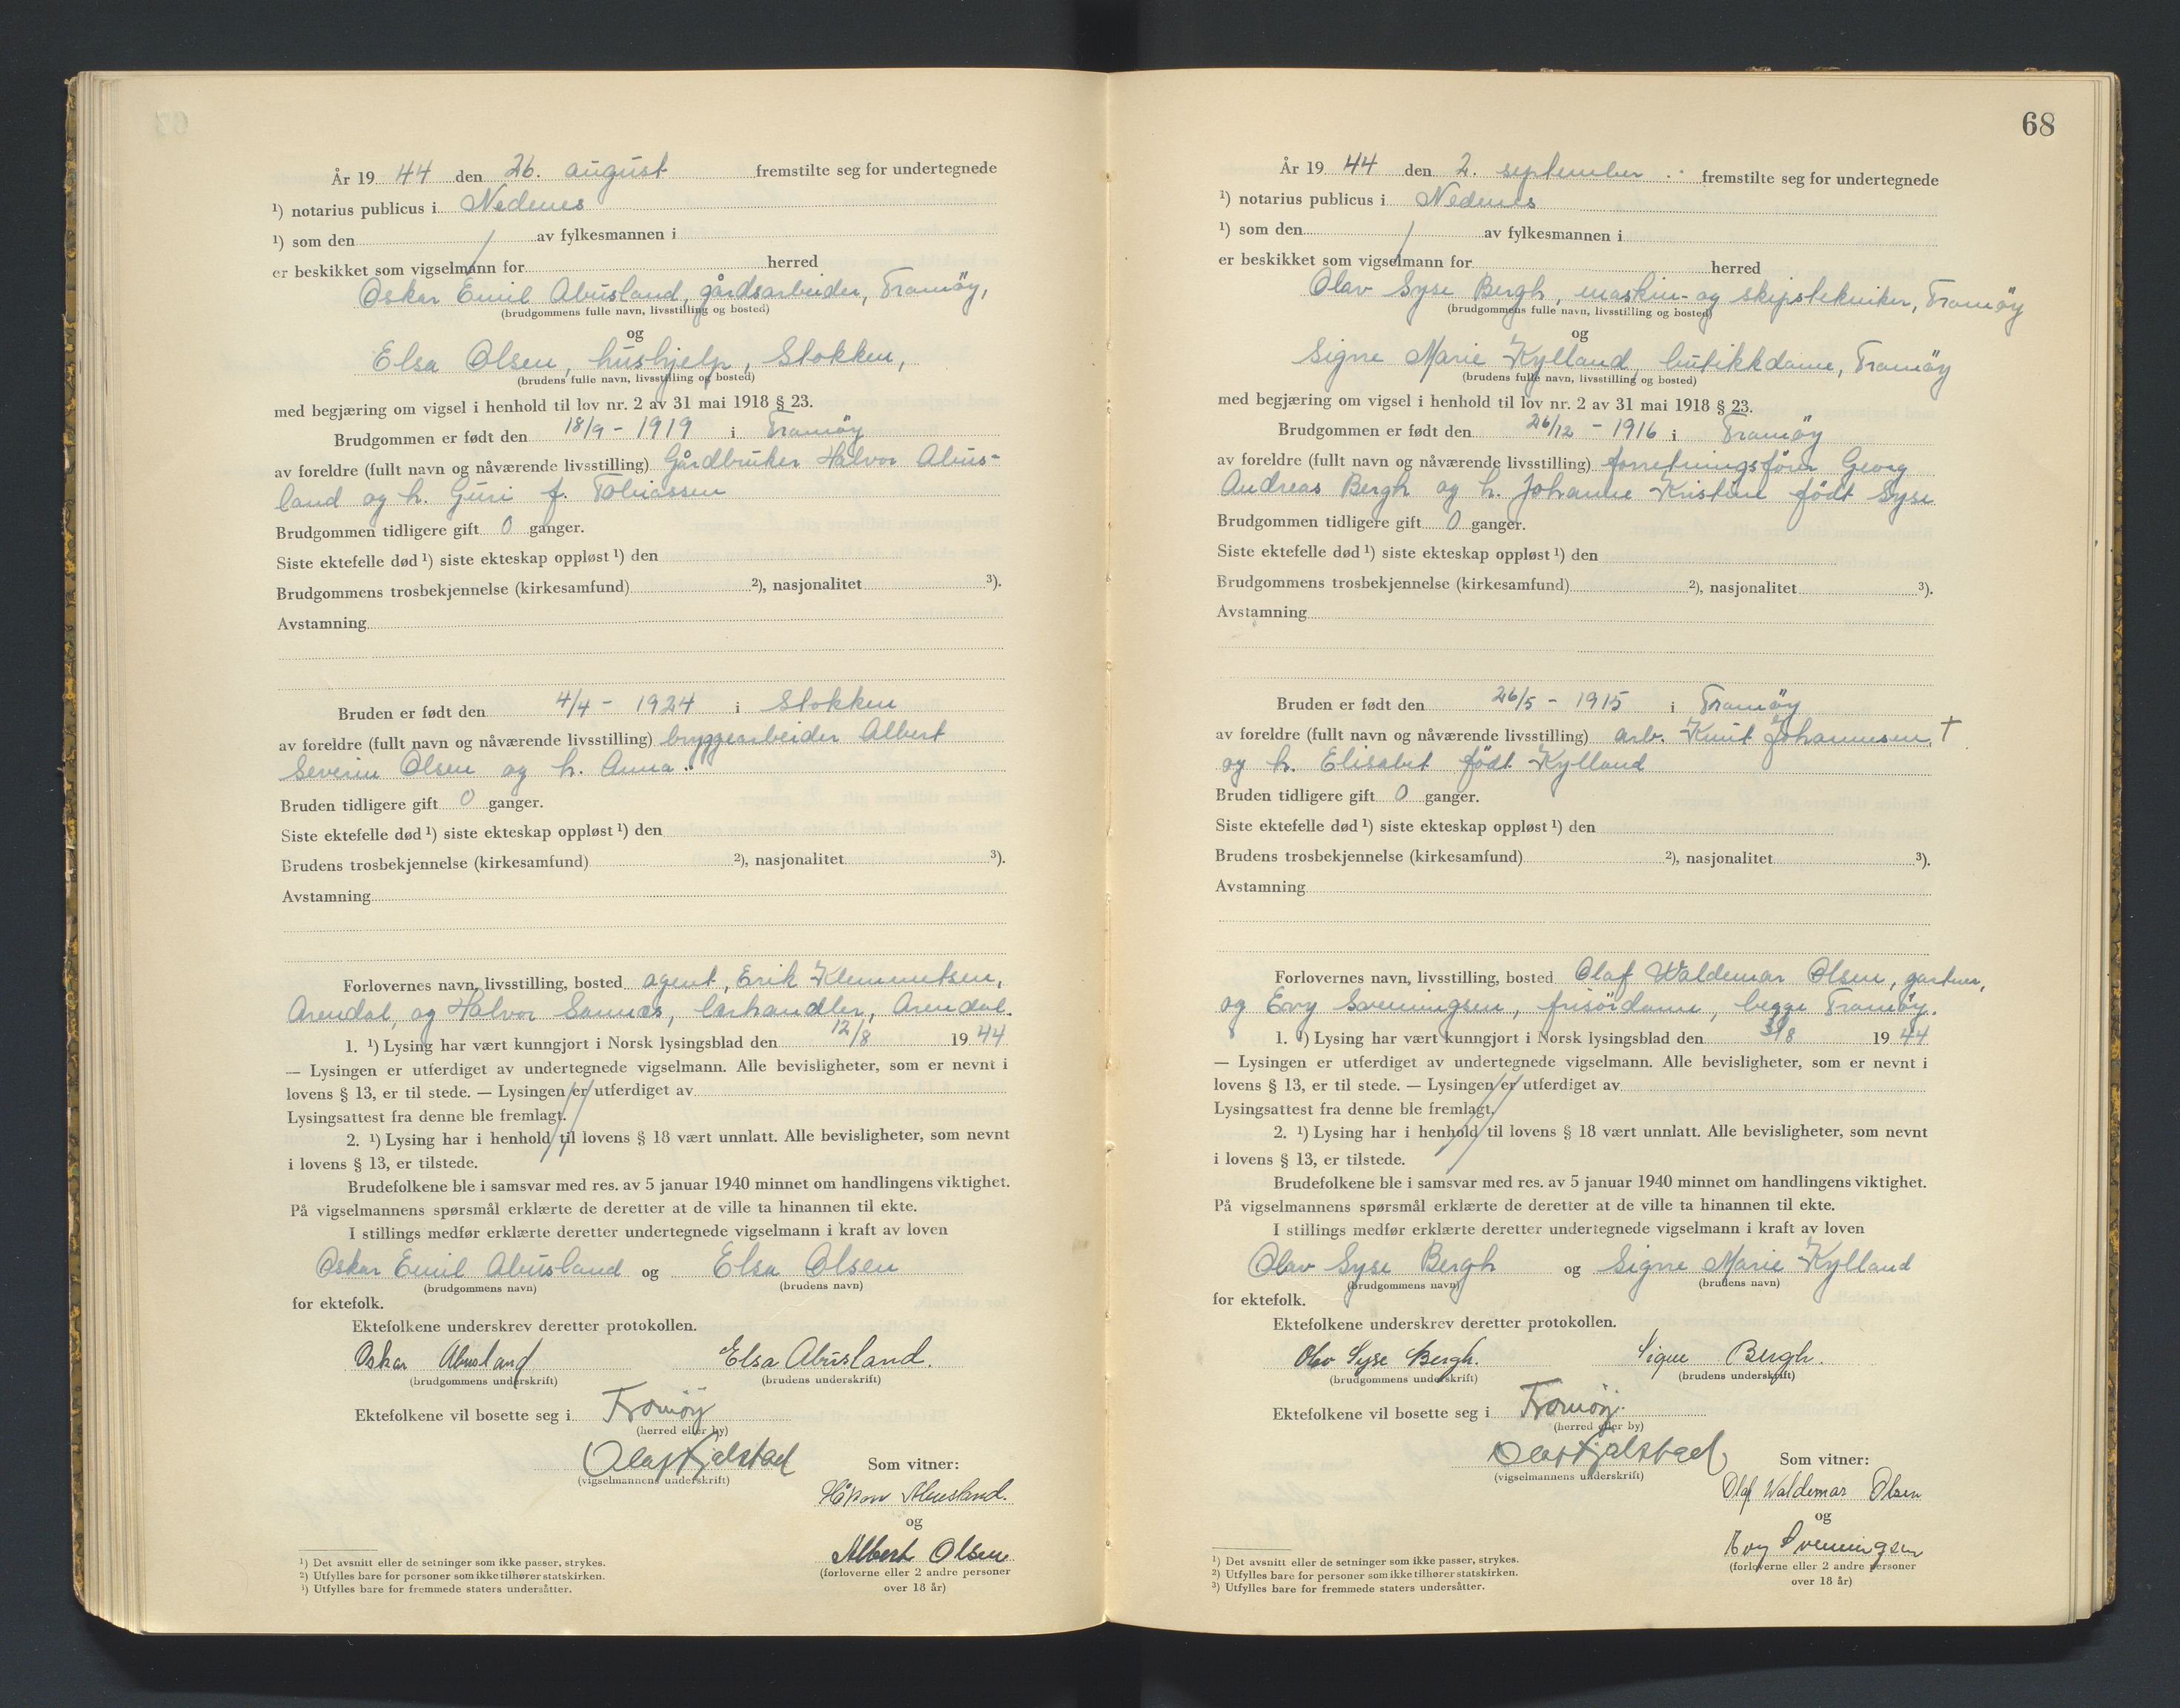 År 19 44 den 26. august fremstilte seg for undertegnede
¹) notarius publicus i Nedenes
¹) som den / av fylkesmannen i
er beskikket som vigselmann for herred
Oskar Emil Abusland, gårdsarbeider, Tromöy,
(brudgommens fulle navn, livsstilling og bosted)
og
Elsa Olsen, hushjelp, Stokken,
(brudens fulle navn, livsstilling og bosted)
med begjæring om vigsel i henhold til lov nr. 2 av 31 mai 1918 § 23.
Brudgommen er født den 18/9 - 1919 i Tromöy
av foreldre (fullt navn og nåværende livsstilling) Gårdbruker Halvor Abus-
land og h. Guri f. Tobiassen
Brudgommen tidligere gift 0 ganger.
Siste ektefelle død ¹) siste ekteskap oppløst ¹) den
Brudgommens trosbekjennelse (kirkesamfund) ²), nasjonalitet ³).
Avstamning
Bruden er født den 4/4 - 1924 i Stokken
av foreldre (fullt navn og nåværende livsstilling) bryggearbeider Albert
Severin Olsen og h. Anna.
Bruden tidligere gift 0 ganger.
Siste ektefelle død ¹) siste ekteskap oppløst ¹) den
Brudens trosbekjennelse (kirkesamfund) ²), nasjonalitet ³).
Avstamning
Forlovernes navn, livsstilling, bosted agent, Erik Klemmetsen,
Arendal, og Halvor Sannæs, lærhandler, Arendal.
1. ¹) Lysing har vært kunngjort i Norsk lysingsblad den 12/8 19 44
— Lysingen er utferdiget av undertegnede vigselmann. Alle bevisligheter, som er nevnt i
lovens § 13, er til stede. — Lysingen er utferdiget av
Lysingsattest fra denne ble fremlagt.
2. ¹) Lysing har i henhold til lovens § 18 vært unnlatt. Alle bevisligheter, som nevnt
i lovens § 13, er tilstede.
Brudefolkene ble i samsvar med res. av 5 januar 1940 minnet om handlingens viktighet.
På vigselmannens spørsmål erklærte de deretter at de ville ta hinannen til ekte.
I stillings medfør erklærte deretter undertegnede vigselmann i kraft av loven
Oskar Emil Abusland og Elsa Olsen
(brudgommens navn) (brudens navn)
for ektefolk.
Ektefolkene underskrev deretter protokollen.
Oskar Abusland Elsa Abusland.
(brudgommens underskrift) (brudens underskrift)
Ektefolkene vil bosette seg i Tromöy
(herred eller by)
Olaf Fjalstad Som vitner:
(vigselmannens underskrift)
Håkon Abusland.
og
Albert Olsen
(forloverne eller 2 andre personer
over 18 år)
¹) Det avsnitt eller de setninger som ikke passer, strykes.
²) Utfylles bare for personer som ikke tilhører statskirken.
³) Utfylles bare for fremmede staters undersåtter.
68
År 19 44 den 2. september fremstilte seg for undertegnede
¹) notarius publicus i Nedenes
¹) som den / av fylkesmannen i
er beskikket som vigselmann for herred
Olav Syse Bergh, maskin- og skipstekniker, Tromöy
(brudgommens fulle navn, livsstilling og bosted)
og
Signe Marie Kylland, butikkdame, Tromöy
(brudens fulle navn, livsstilling og bosted)
med begjæring om vigsel i henhold til lov nr. 2 av 31 mai 1918 § 23.
Brudgommen er født den 26/12 - 1916 i Tromöy
av foreldre (fullt navn og nåværende livsstilling) forretningsfører Georg
Andreas Bergh og h. Johanne Kristine födt Syse
Brudgommen tidligere gift 0 ganger.
Siste ektefelle død ¹) siste ekteskap oppløst ¹) den
Brudgommens trosbekjennelse (kirkesamfund) ²), nasjonalitet ³).
Avstamning
Bruden er født den 26/5 - 1915 i Tromöy
av foreldre (fullt navn og nåværende livsstilling) arb. Knut Johannesen, †
og h. Elisabet födt Kylland
Bruden tidligere gift 0 ganger.
Siste ektefelle død ¹) siste ekteskap oppløst ¹) den
Brudens trosbekjennelse (kirkesamfund) ²), nasjonalitet ³).
Avstamning
Forlovernes navn, livsstilling, bosted Olaf Waldemar Olsen, gartner,
og Evy Svenningsen, frisördame, begge Tromöy.
1. ¹) Lysing har vært kunngjort i Norsk lysingsblad den /8 19 44
— Lysingen er utferdiget av undertegnede vigselmann. Alle bevisligheter, som er nevnt i
lovens § 13, er til stede. — Lysingen er utferdiget av
Lysingsattest fra denne ble fremlagt.
2. ¹) Lysing har i henhold til lovens § 18 vært unnlatt. Alle bevisligheter, som nevnt
i lovens § 13, er tilstede.
Brudefolkene ble i samsvar med res. av 5 januar 1940 minnet om handlingens viktighet.
På vigselmannens spørsmål erklærte de deretter at de ville ta hinannen til ekte.
I stillings medfør erklærte deretter undertegnede vigselmann i kraft av loven
Olav Syse Bergh og Signe Marie Kylland
(brudgommens navn) (brudens navn)
for ektefolk.
Ektefolkene underskrev deretter protokollen.
Olav Syse Bergh. Signe Bergh.
(brudgommens underskrift) (brudens underskrift)
Ektefolkene vil bosette seg i Tromöy.
(herred eller by)
Olaf Fjalstad Som vitner:
(vigselmannens underskrift)
Olaf Waldemar Olsen
og
Evy Svenningsen
(forloverne eller 2 andre personer
over 18 år)
¹) Det avsnitt eller de setninger som ikke passer, strykes.
²) Utfylles bare for personer som ikke tilhører statskirken.
³) Utfylles bare for fremmede staters undersåtter.